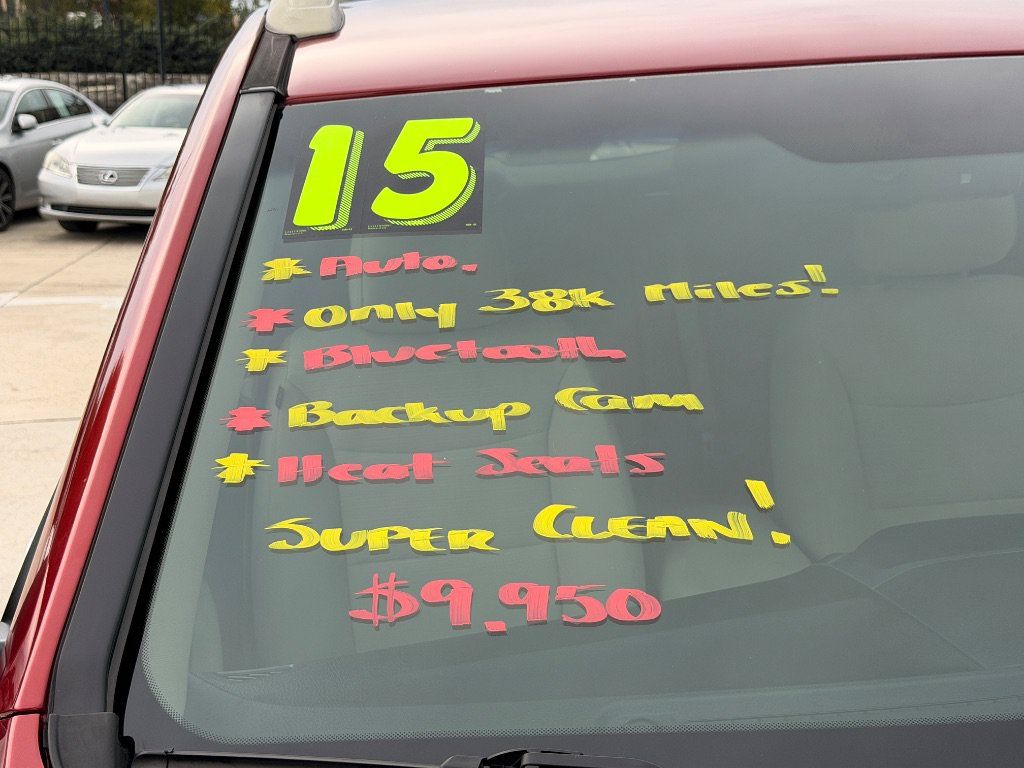 15
* Auto.
* Only 38k Miles!
* Bluetooth
* Backup Cam
* Heat Seats
SUPER CLEAN!
$9,950